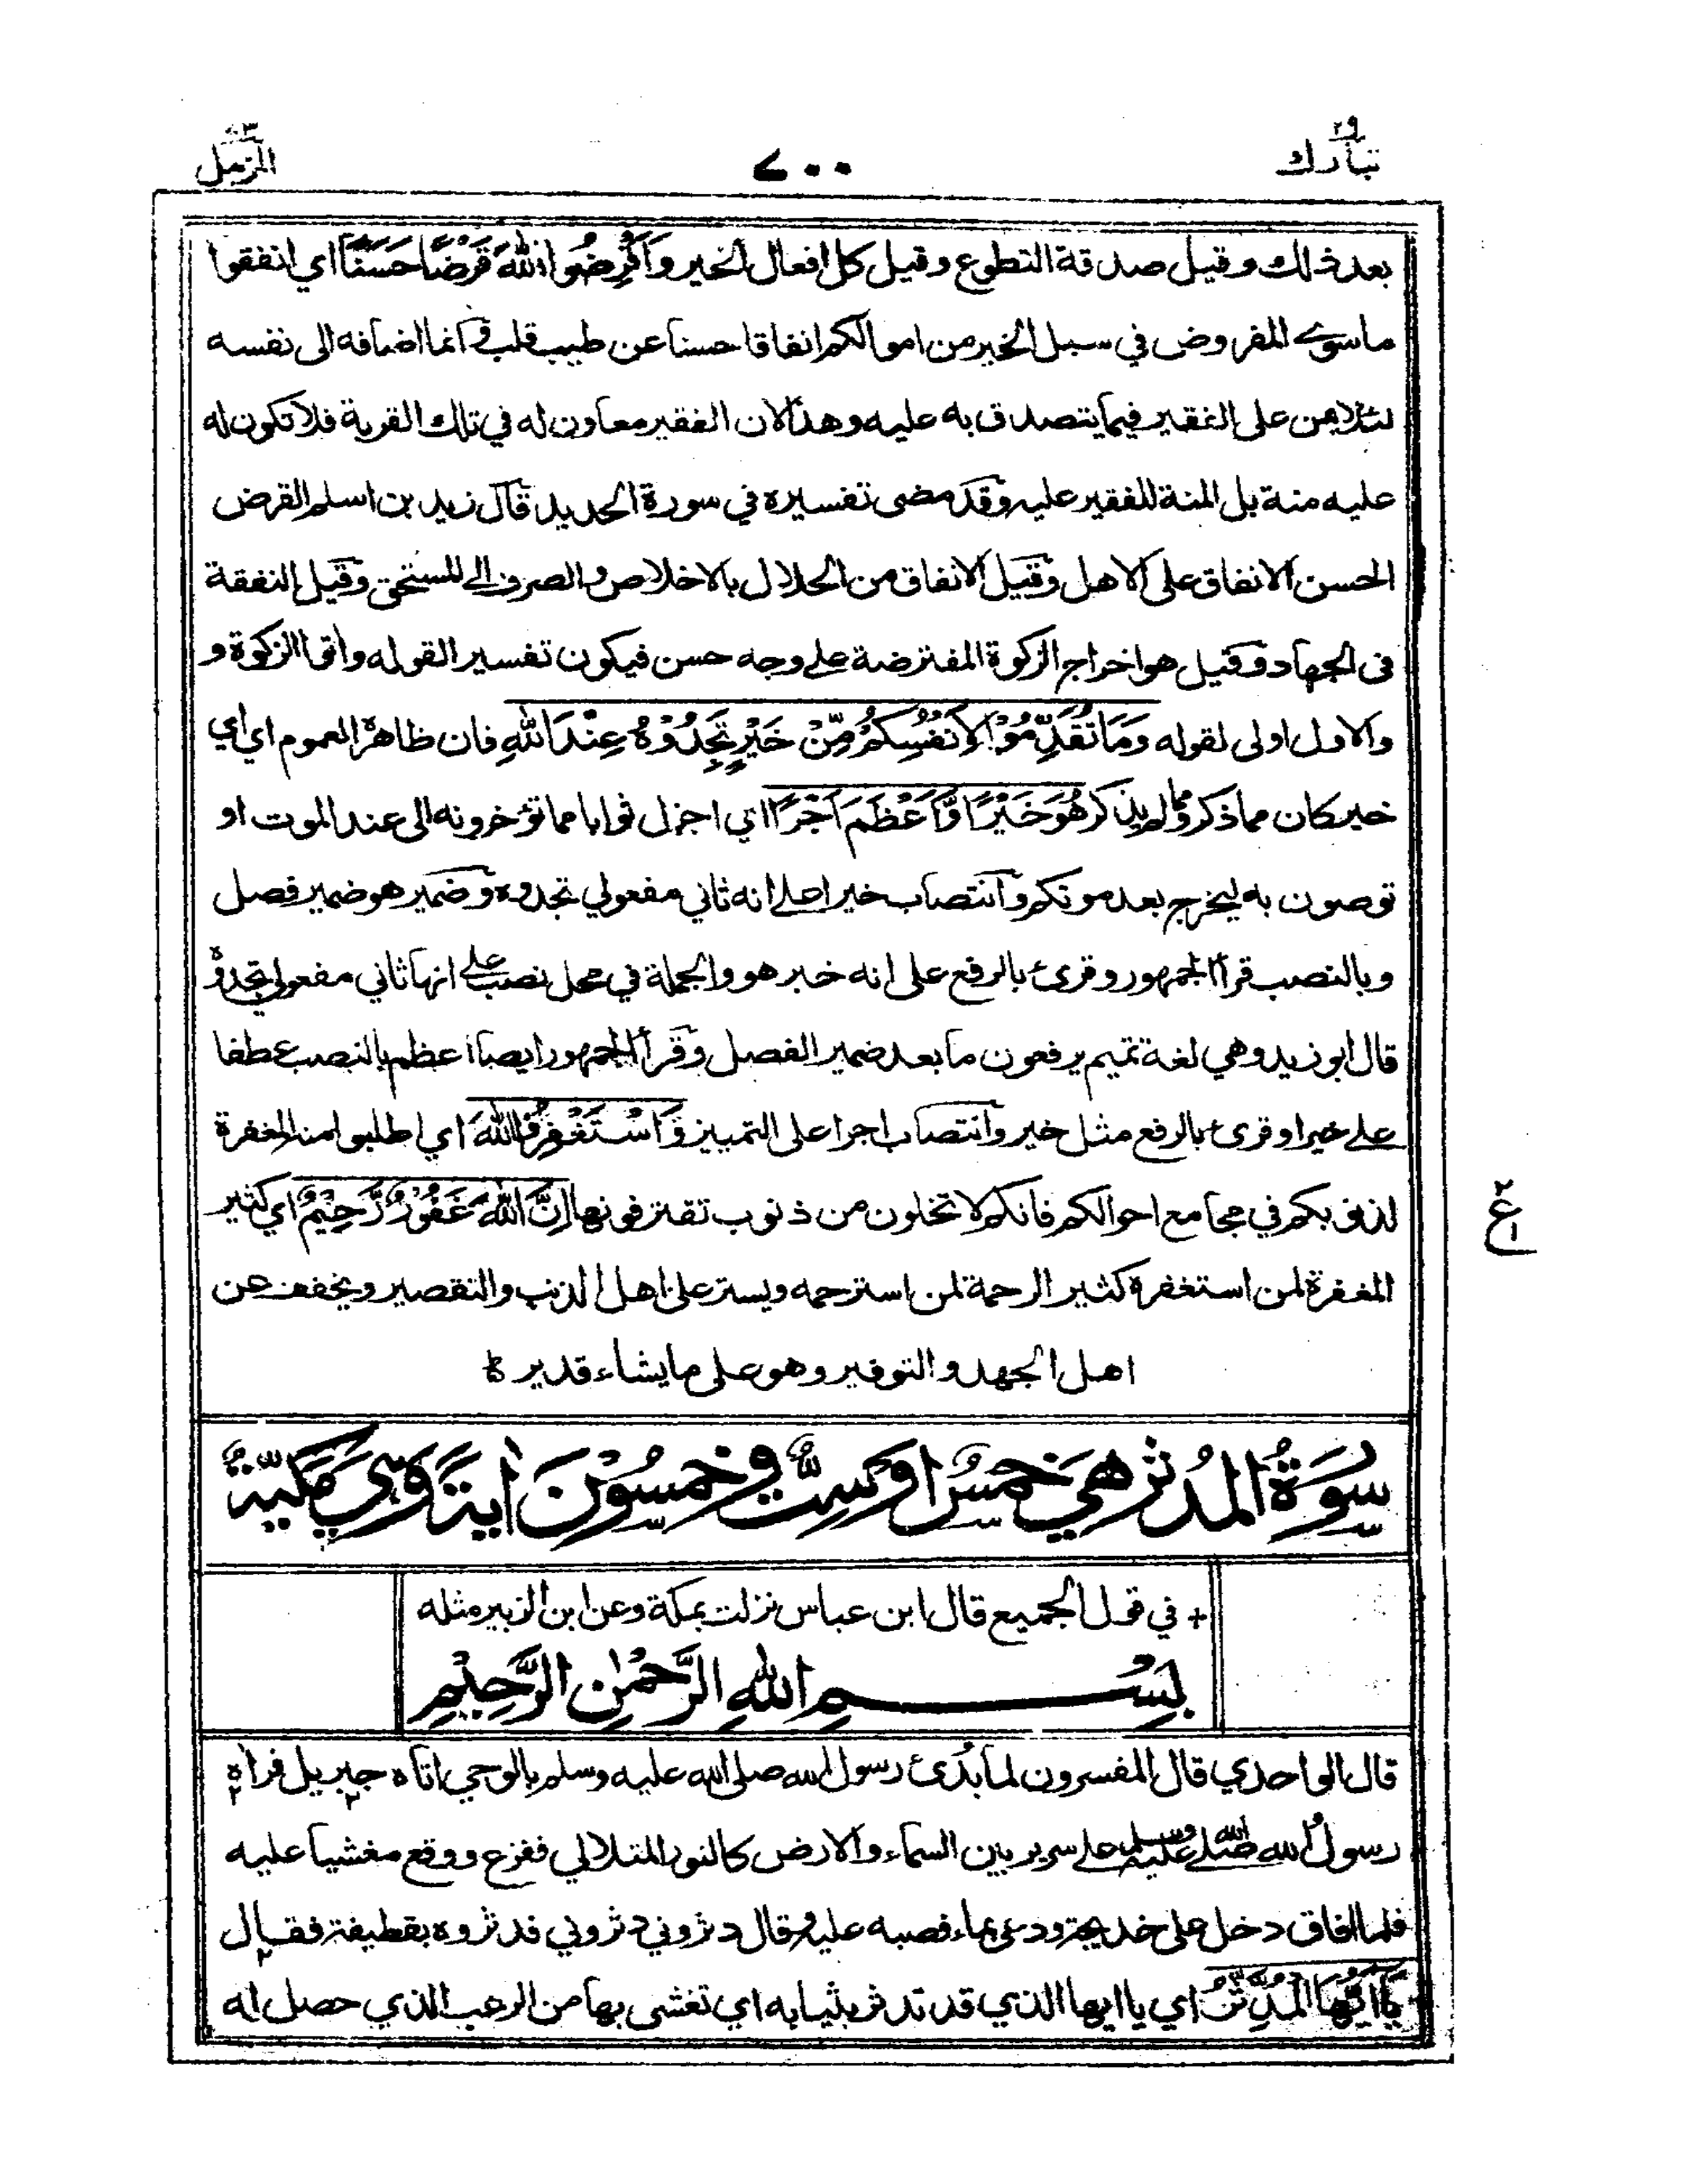 تبارك ٢٩
٧٠٠
المزمل ٧٣
بعد ذلك وقيل صدقة التطوع وقيل كل افعال الخير وَاَقْرِضُوا اللّٰهَ قَرْضًا حَسَنًا اي انفقوا
ماسوے المفروض في سبل الخير من اموالكم انفاقا حسنا عن طيب قلب وانما اضافه الى نفسه
لئلا يمن على الفقير فيما يتصدق به عليه وهذا لان الفقير معاون له في تلك القربة فلا تكون له
عليه منة بل المنة للفقير عليه وقد مضى تفسيره في سورة الحديد قال زيد بن اسلم القرض
الحسن الانفاق على الاهل وقيل الانفاق من الحلال بالاخلاص والصرف الے المستحق وقيل النفقة
فى الجهاد وقيل هو اخراج الزكوة المفترضة علے وجه حسن فيكون تفسير القوله واتوا الزكوة و
والاول اولى لقوله وَمَا تُقَدِّمُوْا لِاَنْفُسِكُمْ مِّنْ خَيْرٍ تَجِدُوْهُ عِنْدَ اللّٰهِ فان ظاهرة العموم اي اي
خير كان مما ذكر ومما لم يذكر هُوَ خَيْرًا وَّاَعْظَمَ اَجْرًا اي اجزل ثوابا مما تؤخرونه الى عند الموت او
توصون به ليخرج بعد موتكم وانتصاب خيرا علے انه ثاني مفعولي تجدوه وضمير هو ضمير فصل
وبالنصب قرأ الجمهور وقرئ بالرفع على انه خبر هو والجملة في محل نصب علے انها ثاني مفعولي تجدوه
قال ابو زيد وهي لغة تميم يرفعون ما بعد ضمير الفصل وقرأ الجمهور ايضا اعظم بالنصب عطفا
علے خيرا وقرئ بالرفع مثل خير وانتصاب اجرا على التمييز وَاسْتَغْفِرُوا اللّٰهَ اي اطلبوا منه المغفرة
لذنوبكم في مجامع احوالكم فانكم لا تخلون من ذنوب تقترفونها اِنَّ اللّٰهَ غَفُوْرٌ رَّحِيْمٌ اي كثير
المغفرة لمن استغفرة كثير الرحمة لمن استرحمه ويستر على اهل الذنب والتقصير ويخفف عن
اهل الجهد والتوفير وهو على ما يشاء قدير
ع
سُوْرَةُ المُدثر هِيَ خمسٌ اوْ سِتٌّ وخمسُوْنَ ايَةً وَهِيَ مَكّيَّةٌ
في قول الجميع قال ابن عباس نزلت بمكة وعن ابن الزبير مثله
بِسْمِ اللهِ الرَّحْمٰنِ الرَّحِيْمِ
قال الواحدي قال المفسرون لما بُدئ رسول الله صلى الله عليه وسلم بالوحي اتاه جبريل فراه
رسول الله صلى الله عليه وسلم علے سرير بين السماء والارض كالنور المتلالي ففزع ووقع مغشيا عليه
فلما افاق دخل على خديجة ودعى بماء فصبه عليه وقال دثروني دثروني فدثروه بقطيفة فقال
يٰاَيُّهَا الْمُدَّثِّرُ اي يا ايها الذي قد تدثر بثيابه اي تغشى بها من الرعب الذي حصل له